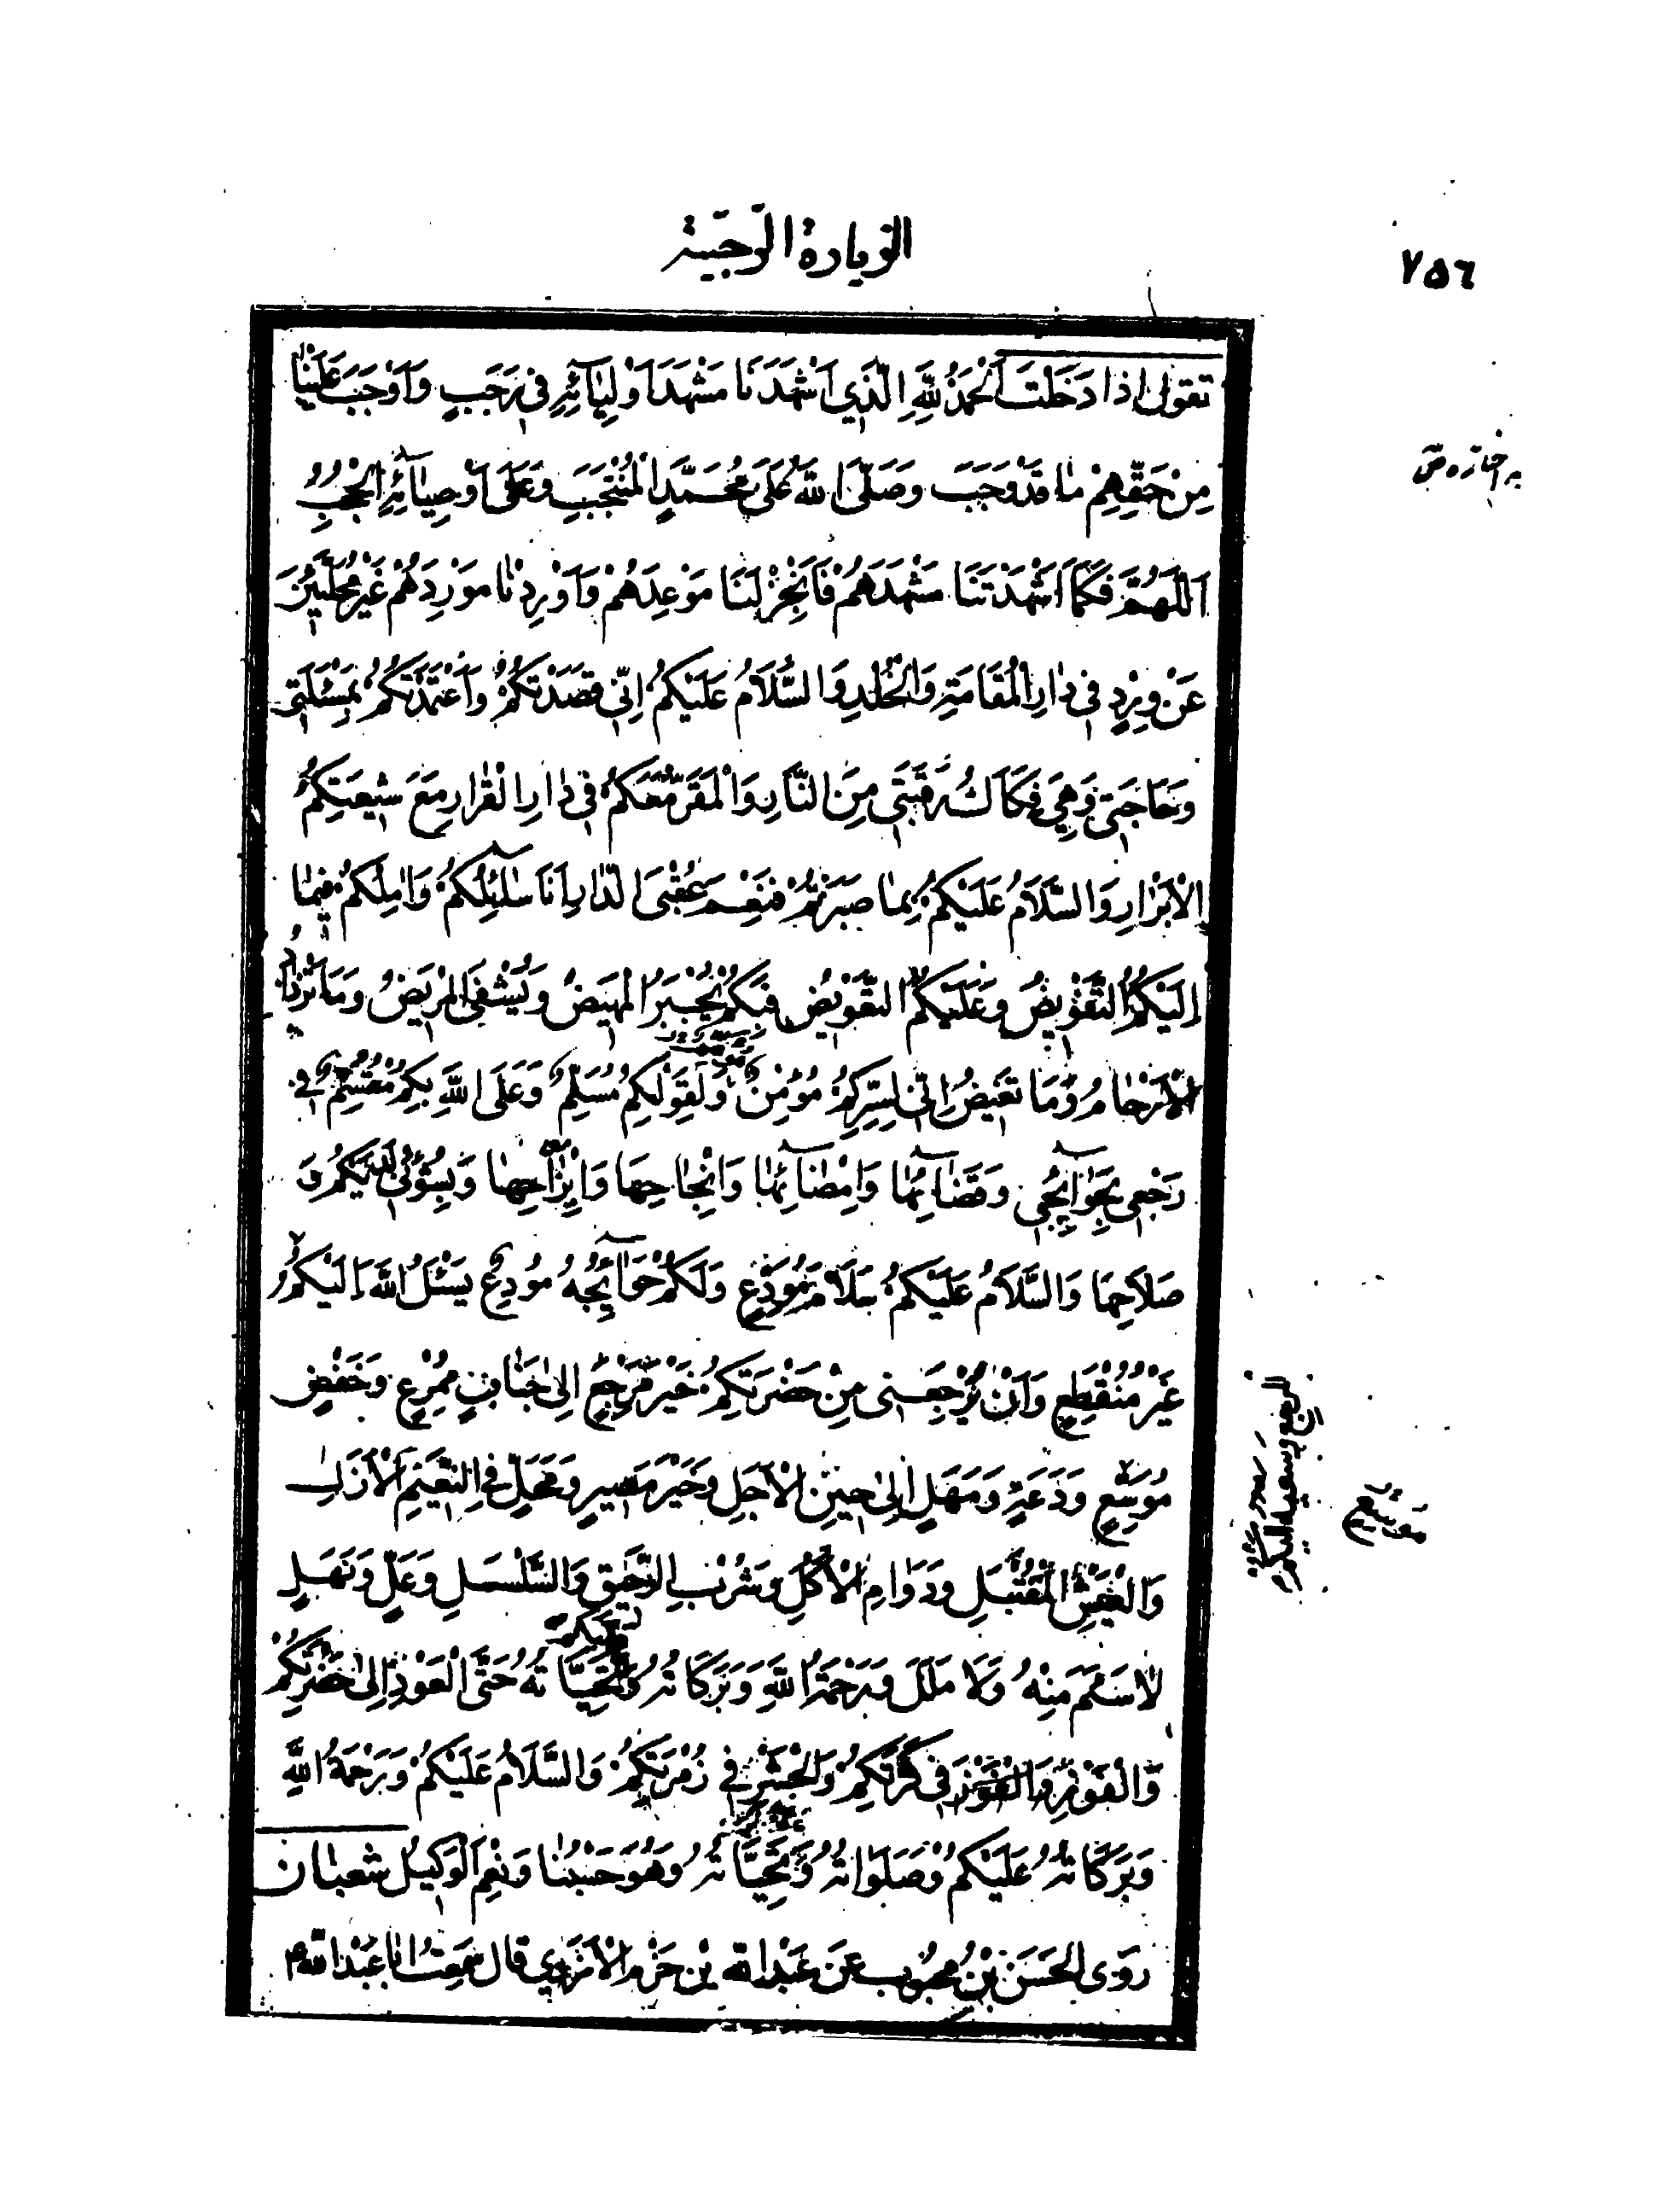 الزيارة الرّجبيّة
٧٥٦
تقول اذا دَخَلْتَ اَلْحَمْدُ لِلّٰهِ الَّذِي اَشْهَدَنَا مَشْهَدَ اَوْلِيَآئِهِ فِي رَجَبٍ وَاَوْجَبَ عَلَيْنَا
مِنْ حَقِّهِمْ مَا قَدْ وَجَبَ وَصَلَّى اللّٰهُ عَلَى مُحَمَّدٍ الْمُنْتَجَبِ وَعَلَى اَوْصِيَآئِهِ الْحُجُبِ
اَللّٰهُمَّ فَكَمَا اَشْهَدْتَنَا مَشْهَدَهُمْ فَاَنْجِزْ لَنَا مَوْعِدَهُمْ وَاَوْرِدْنَا مَوْرِدَهُمْ غَيْرَ مُحَلَّئِينَ
عَنْ وِرْدٍ فِي دَارِ الْمُقَامَةِ وَالْخُلْدِ وَالسَّلَامُ عَلَيْكُمْ اِنِّي قَصَدْتُكُمْ وَاعْتَمَدْتُكُمْ بِمَسْئَلَتِي
وَحَاجَتِي وَهِيَ فَكَاكُ رَقَبَتِي مِنَ النَّارِ وَالْمَقَرُّ مَعَكُمْ فِي دَارِ الْقَرَارِ مَعَ شِيعَتِكُمُ
الْاَبْرَارِ وَالسَّلَامُ عَلَيْكُمْ بِمَا صَبَرْتُمْ فَنِعْمَ عُقْبَى الدَّارِ اَنَا سَآئِلُكُمْ وَاٰمِلُكُمْ فِيمَا
اِلَيْكُمُ التَّفْوِيضُ وَعَلَيْكُمُ التَّعْوِيضُ فَبِكُمْ يُجْبَرُ الْمَهِيضُ وَيُشْفَى الْمَرِيضُ وَمَا تَزْدَادُ
الْاَرْحَامُ وَمَا تَغِيضُ اِنِّي بِسِرِّكُمْ مُؤْمِنٌ وَلِقَوْلِكُمْ مُسَلِّمٌ وَعَلَى اللّٰهِ بِكُمْ مُقْسِمٌ فِي
رَجْعِي بِحَوَآئِجِي وَقَضَآئِهَا وَاِمْضَآئِهَا وَاِنْجَاحِهَا وَاِبْرَاحِهَا وَبِشُؤُنِي لَدَيْكُمْ وَ
صَلَاحِهَا وَالسَّلَامُ عَلَيْكُمْ سَلَامَ مُوَدِّعٍ وَلَكُمْ حَوَآئِجَهُ مُودِعٌ يَسْئَلُ اللّٰهَ اِلَيْكُمْ
غَيْرَ مُنْقَطِعٍ وَاَنْ يَرْجِعَنِي مِنْ حَضْرَتِكُمْ خَيْرَ مَرْجِعٍ اِلَى جَنَابٍ مُمْرِعٍ وَخَفْضٍ
مُوَسَّعٍ وَدَعَةٍ وَمَهَلٍ اِلَى حِينِ الْاَجَلِ وَخَيْرِ مَصِيرٍ وَمَحَلٍّ فِي النَّعِيمِ الْاَزَلِ
وَالْعَيْشِ الْمُقْتَبَلِ وَدَوَامِ الْاُكُلِ وَشُرْبِ الرَّحِيقِ وَالسَّلْسَلِ وَعَلٍّ وَنَهَلٍ
لَا سَئَمَ مِنْهُ وَلَا مَلَلَ وَرَحْمَةُ اللّٰهِ وَبَرَكَاتُهُ وَتَحِيَّاتُهُ حَتَّى الْعَوْدِ اِلَى حَضْرَتِكُمْ
وَالْفَوْزِ فِي كَرَّتِكُمْ وَالْحَشْرِ فِي زُمْرَتِكُمْ وَالسَّلَامُ عَلَيْكُمْ وَرَحْمَةُ اللّٰهِ
وَبَرَكَاتُهُ عَلَيْكُمْ وَصَلَوَاتُهُ وَتَحِيَّاتُهُ وَهُوَ حَسْبُنَا وَنِعْمَ الْوَكِيلُ شعبان
رَوَى الْحَسَنُ بْنُ مَحْبُوبٍ عَنْ عَبْدِاللّٰه بْنِ حَزْمٍ الْاَزْدِي قال سَمِعْتُ اَبَا عَبْدِ اللّٰه